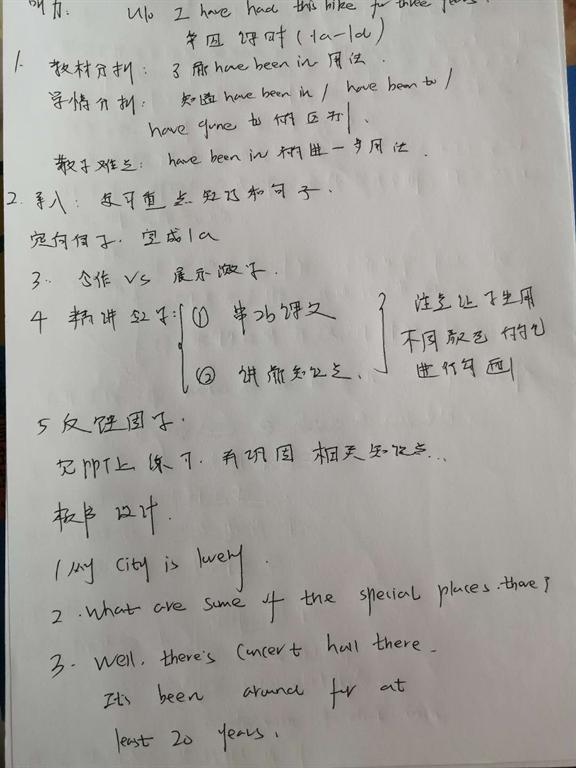 U10 I have had this bike for three years.
第四课时 (1a-1d)
1. 教材分析: 了解 have been in 用法.
学情分析: 知道 have been in / have been to /
have gone to 的区别.
教学难点: have been in 的进一步用法.
2. 导入: 复习重点知识和句子.
定向自学. 完成1a
3. 合作 vs 展示激学.
4 精讲 导学: ① 第2b课文
② 讲解知识点.
注意让学生用
不同颜色的笔
进行勾画
5 反馈固学.
见PPT上练习. 再巩固相关知识点...
板书设计.
1 My city is lovely.
2. What are some of the special places there?
3. Well, there's concert hall there.
It's been around for at
least 20 years.